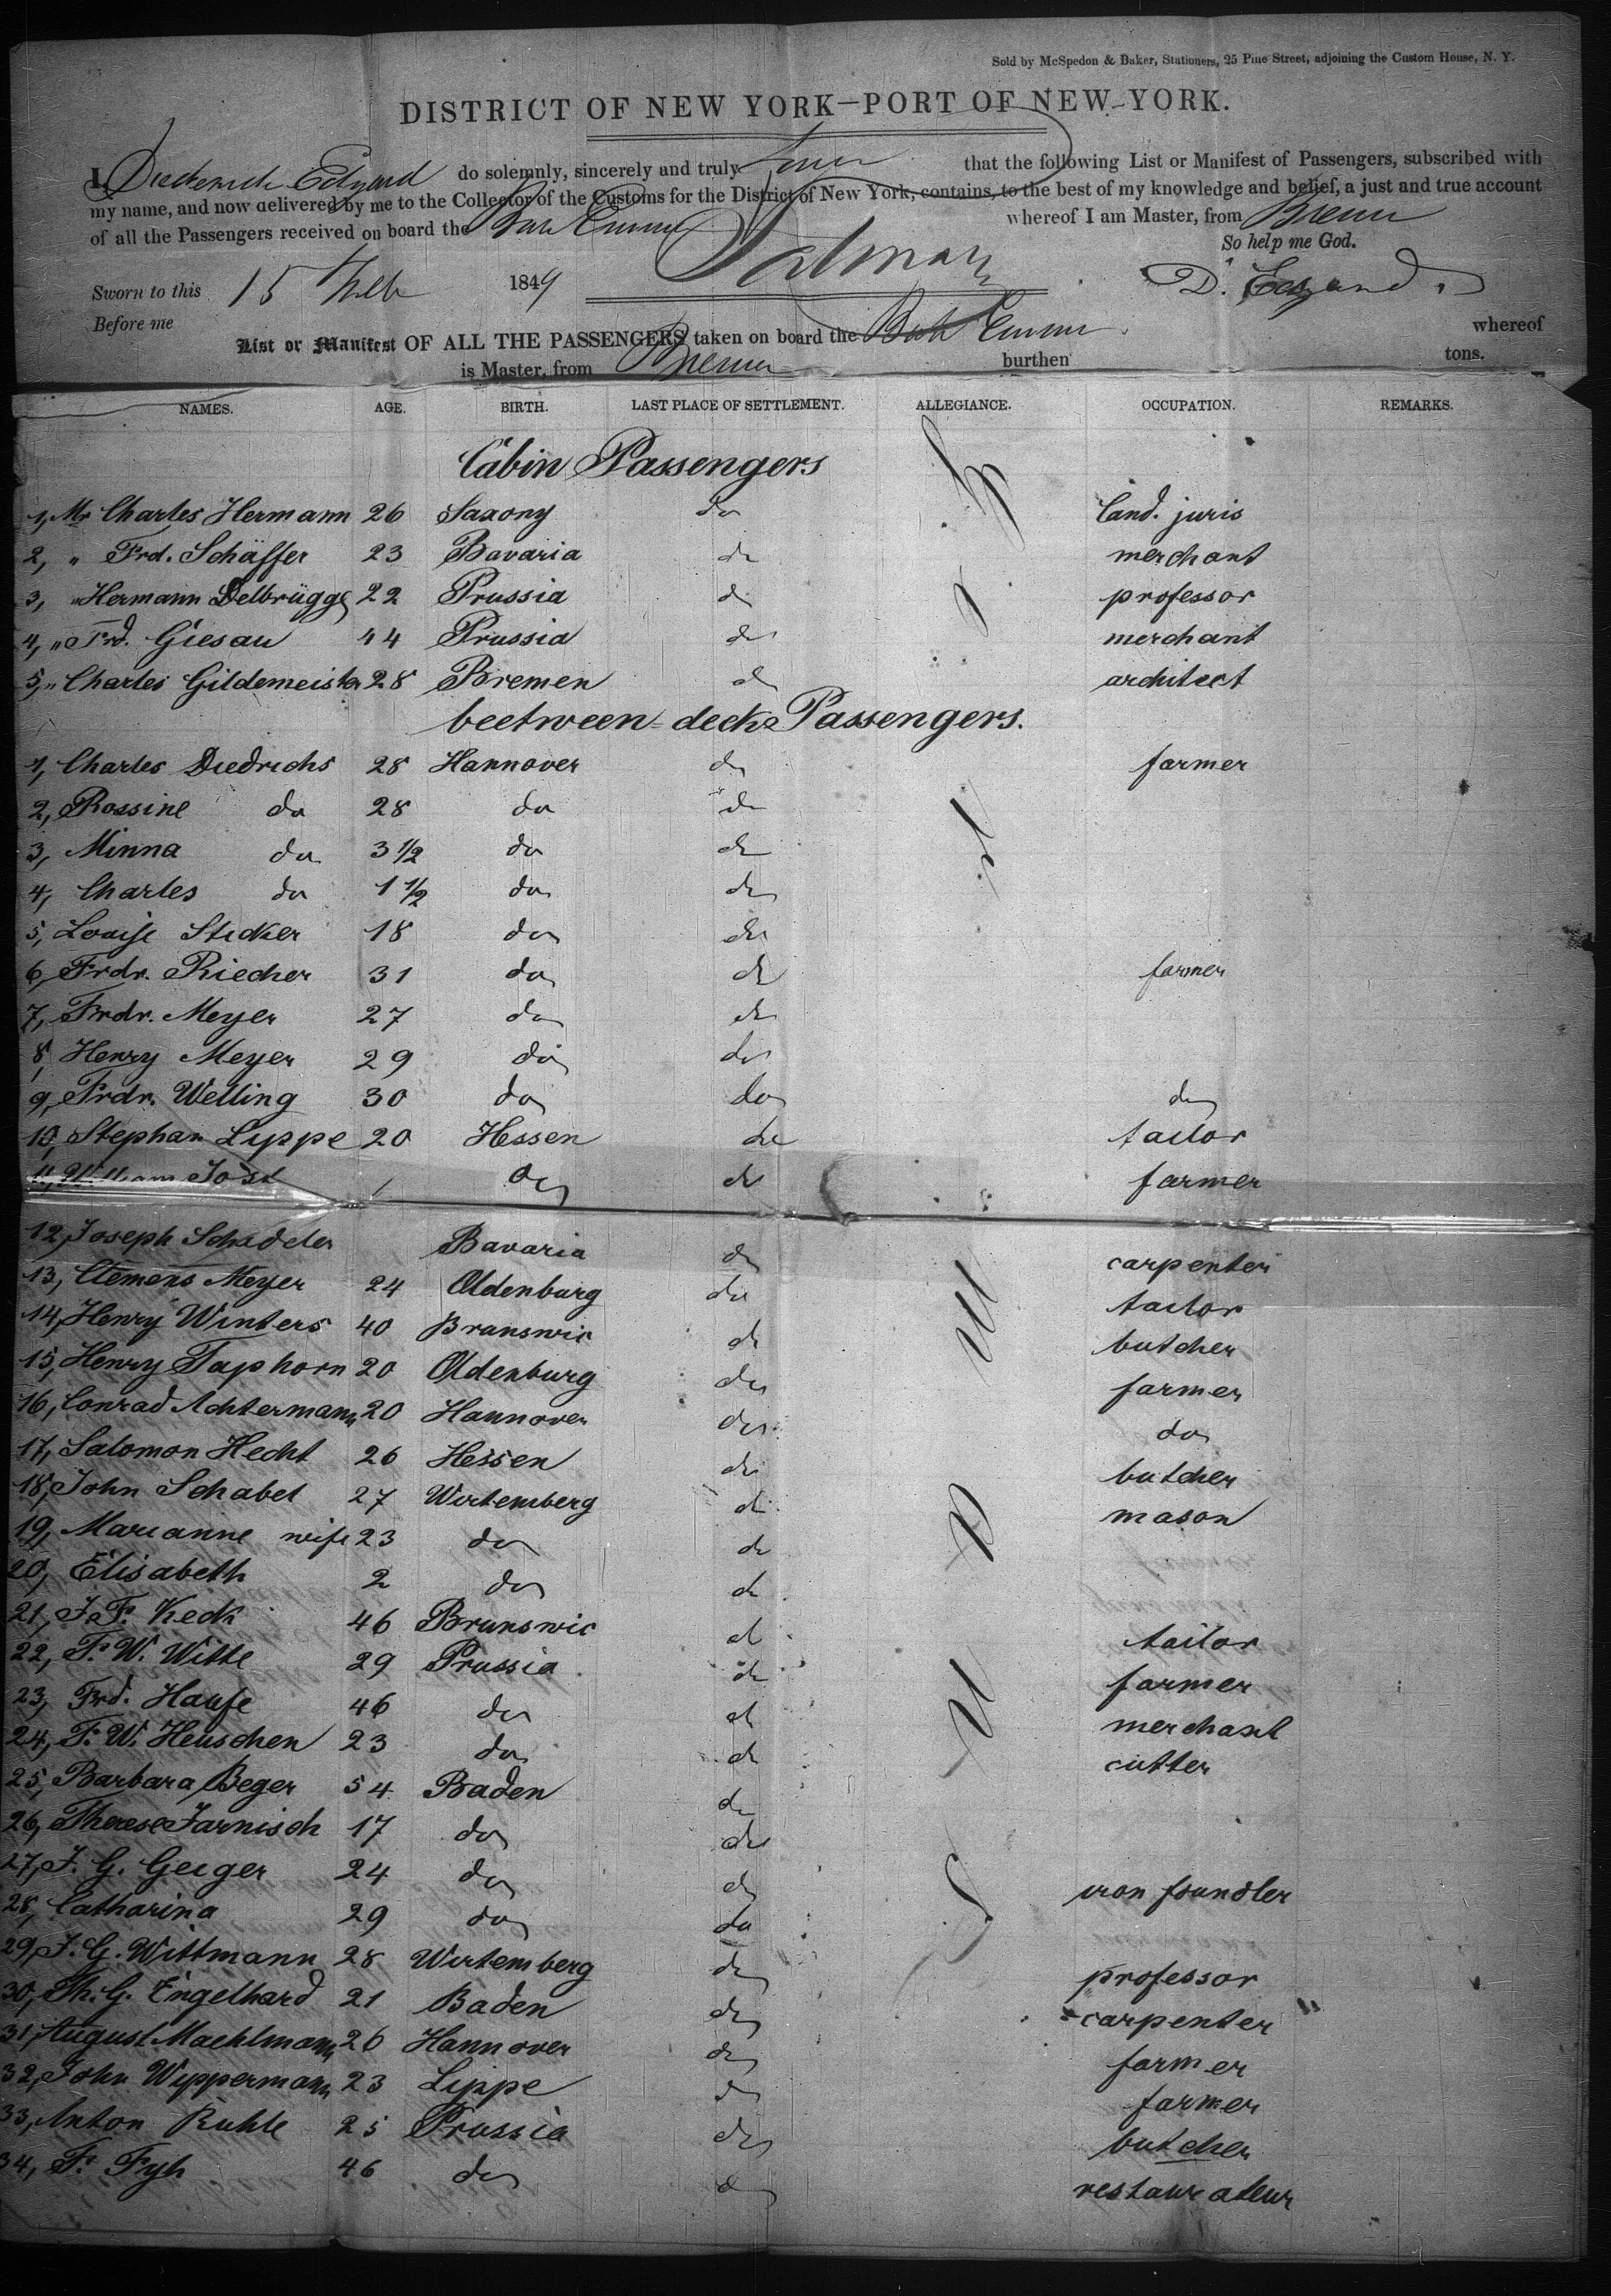 Sold by McSpedon & Baker, Stationers, 25 Pine Street, adjoining the Custom House, N. Y.
DISTRICT OF NEW YORK—PORT OF NEW-YORK.
I, do solemnly, sincerely and truly that the following List or Manifest of Passengers, subscribed with
my name, and now delivered by me to the Collector of the Customs for the District of New York, contains, to the best of my knowledge and belief, a just and true account
of all the Passengers received on board the whereof I am Master, from Bremen
So help me God.
Sworn to this 15 1849
Before me
List or Manifest OF ALL THE PASSENGERS taken on board the whereof
is Master, from Bremen burthen tons.
NAMES. AGE. BIRTH. LAST PLACE OF SETTLEMENT. ALLEGIANCE. OCCUPATION. REMARKS.
Cabin Passengers
1, Mr Charles Hermann 26 Saxony do Cand. juris
2, " Frd. Schäffer 23 Bavaria do merchant
3, " Hermann Delbrügge 22 Prussia do professor
4, " Frd. Giesau 44 Prussia do merchant
5, " Charles Gildemeister 28 Bremen do architect
beetween decks Passengers.
1, Charles Diedrichs 28 Hannover do farmer
2, Rossine do 28 do do
3, Minna do 3 1/2 do do
4, Charles do 1 1/2 do do
5, Louise Sticker 18 do do
6, Frdr. Riecher 31 do do farmer
7, Frdr. Meyer 27 do do
8, Henry Meyer 29 do do
9, Frdr. Welling 30 do do do
10, Stephan Lippe 20 Hessen do tailor
11, William Jost do do farmer
12, Joseph Schedeler Bavaria do carpenter
13, Clemens Meyer 24 Oldenburg do tailor
14, Henry Winters 40 Brunswic do butcher
15, Henry Taphorn 20 Oldenburg do farmer
16, Conrad Achtermann 20 Hannover do do
17, Salomon Hecht 26 Hessen do butcher
18, John Schabel 27 Wirtemberg do mason
19, Marianne wife 23 do do
20, Elisabeth 2 do do
21, J. F. Keck 46 Brunswic do tailor
22, F. W. Witte 29 Prussia do farmer
23, Frd. Haufe 46 do do merchant
24, F. W. Heuschen 23 do do cutter
25, Barbara Beger 54 Baden do
26, Therese Jarnisch 17 do do
27, J. G. Geiger 24 do do iron foundler
28, Catharina 29 do do
29, J. G. Wittmann 28 Wirtemberg do professor
30, Th. G. Engelhard 21 Baden do carpenter
31, August Maehlmann 26 Hannover do farmer
32, John Wippermann 23 Lippe do farmer
33, Anton Ruhle 25 Prussia do butcher
34, F. Fyh 46 do do restaurateur